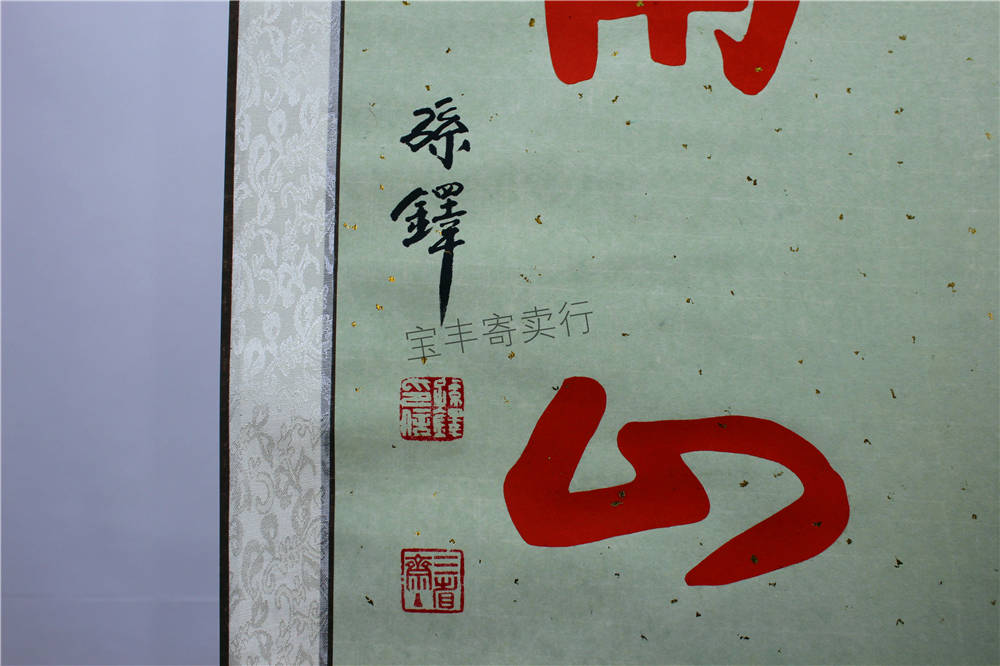 山
孫鐸
宝丰寄卖行
孫鐸印信
三省齋